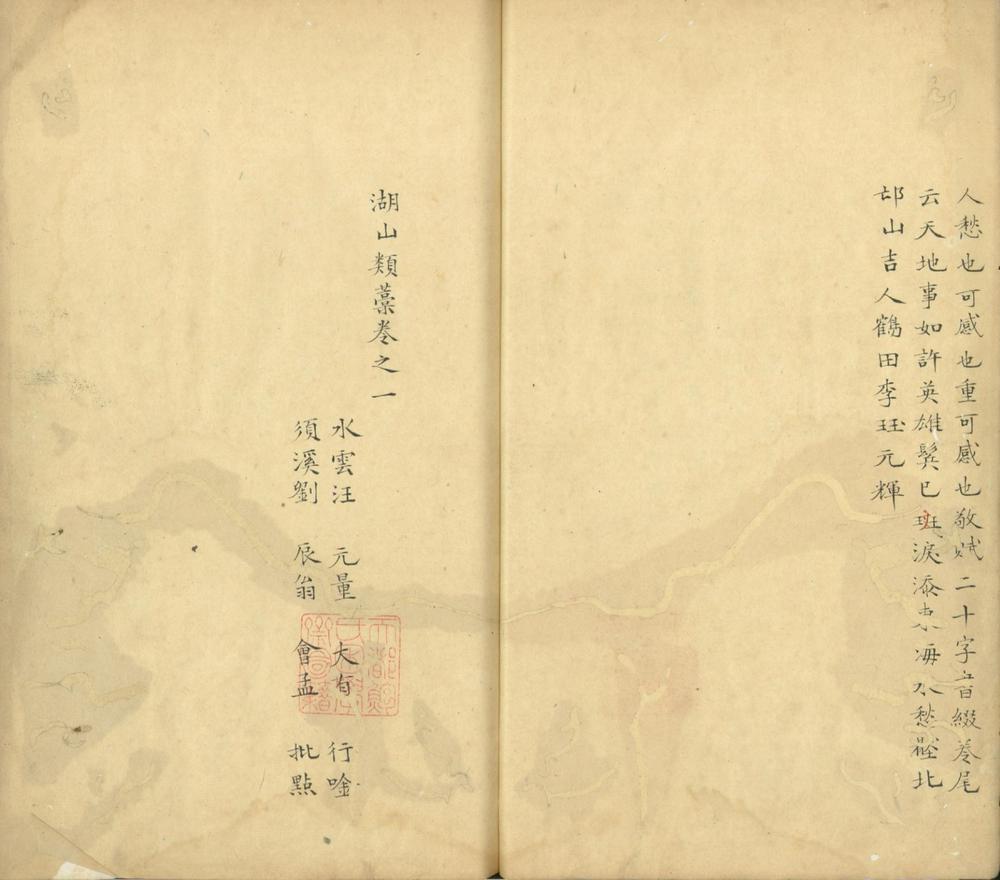 人愁也可感也重可感也敬賦二十字旹綴卷尾
云天地事如許英雄鬂已斑淚添東海水愁壓北
邙山吉人鶴田李珏元輝
湖山類藁卷之一
水雲汪 元量 大有 行唫
須溪劉 辰翁 會孟 批點